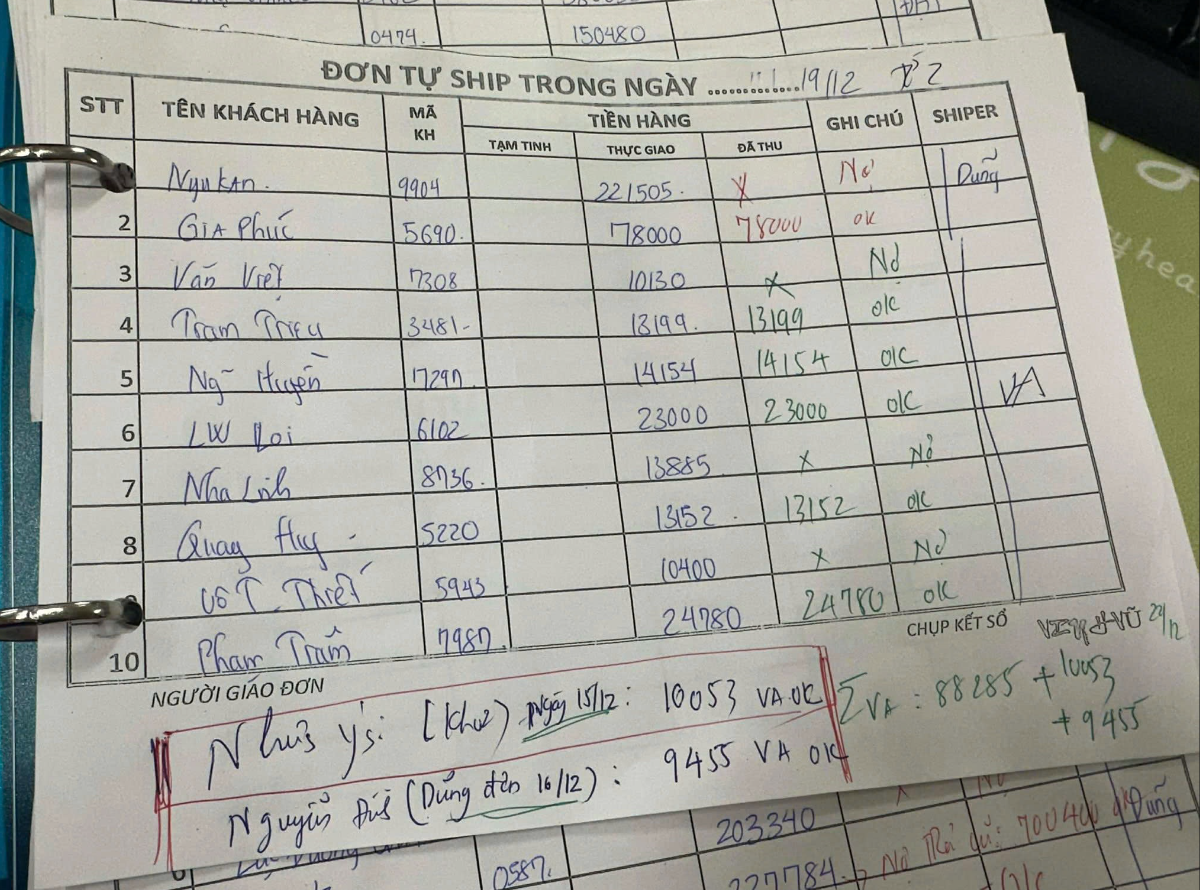 0474. 150480
ĐƠN TỰ SHIP TRONG NGÀY ............. 19/12
STT TÊN KHÁCH HÀNG MÃ KH TIỀN HÀNG GHI CHÚ SHIPER
TẠM TINH THỰC GIAO ĐÃ THU
9904 221505. X Nợ Dũng
2 Gia Phúc 5690. 78000 78000 OK
3 Văn Việt 7308 10130 X Nợ
4 Trâm Triều 3481- 13199. 13199 OK
5 Ng~ Huyền 17297. 14154 14154 OK
6 LW Loi 6102 23000 23000 OK VA
7 Nha Linh 8736. 13885 X Nợ
8 Quang Huy - 5220 13152. 13152 OK
Thiết 5943 10400 X Nợ
10 Pham Trâm 7987. 24780 24780 OK
NGƯỜI GIAO ĐƠN CHỤP KẾT SỔ VŨ 22/12
ý: (khư) Ngày 15/12: 10053 VA OK
Σ VA: 88285 + 10053
+ 9455
Nguyễn (Dũng đến 16/12): 9455 VA OK
203340
0587. 227784 Nợ 700400 Dũng
OK